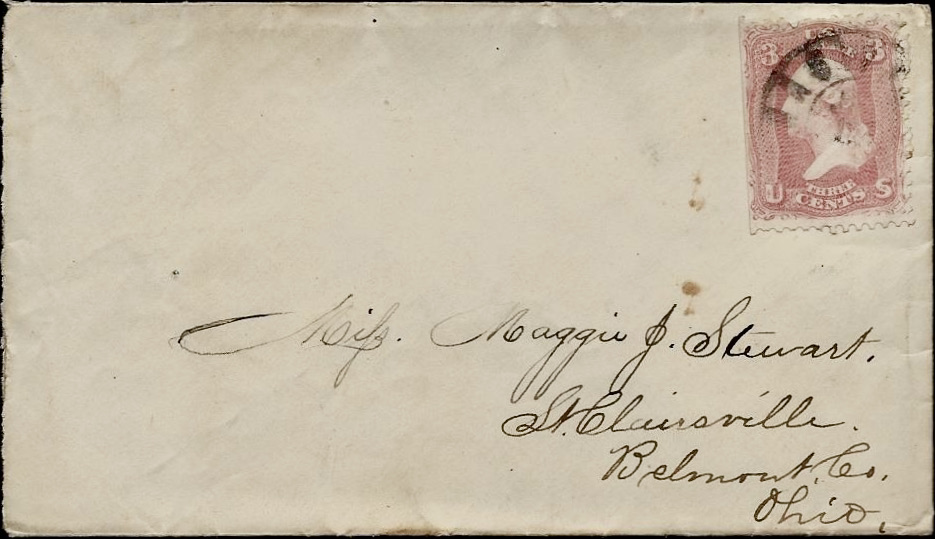 3 3
U S
THREE
CENTS
Miss. Maggie J. Stewart.
St. Clairsville.
Belmont, Co.
Ohio,